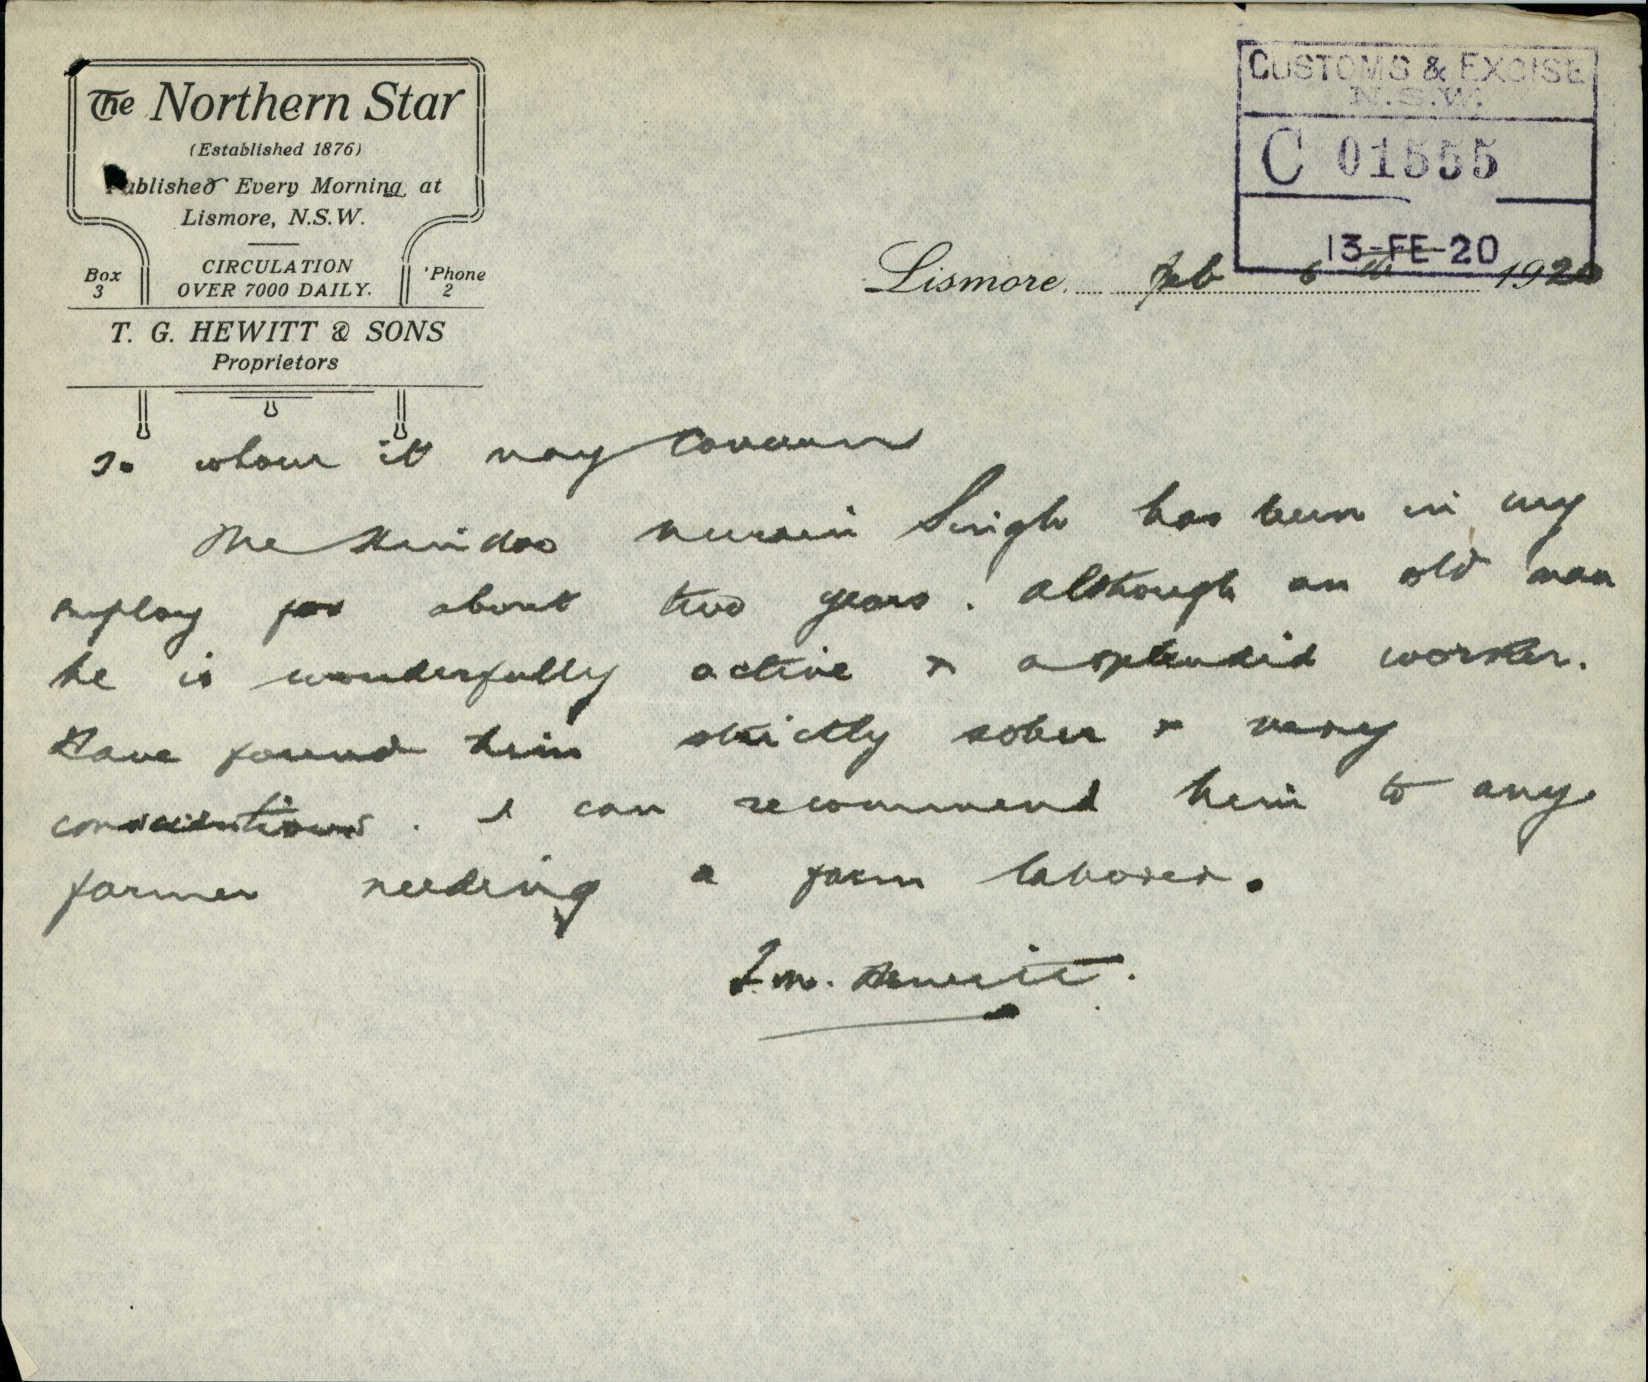 The Northern Star
(Established 1876)
Published Every Morning at
Lismore, N.S.W.
CIRCULATION
OVER 7000 DAILY.
Box
3
'Phone
2
T. G. HEWITT & SONS
Proprietors
CUSTOMS & EXCISE
N.S.W.
C 01555
13-FE-20
Lismore Feb 6th 1920
To whom it may concern
The Hindoo Singh has been in my
employ for about two years. Although an old man
he is wonderfully active & a splendid worker.
Have found him strictly sober & very
conscientious. I can recommend him to any
farmer needing a farm laborer.
Hewitt.